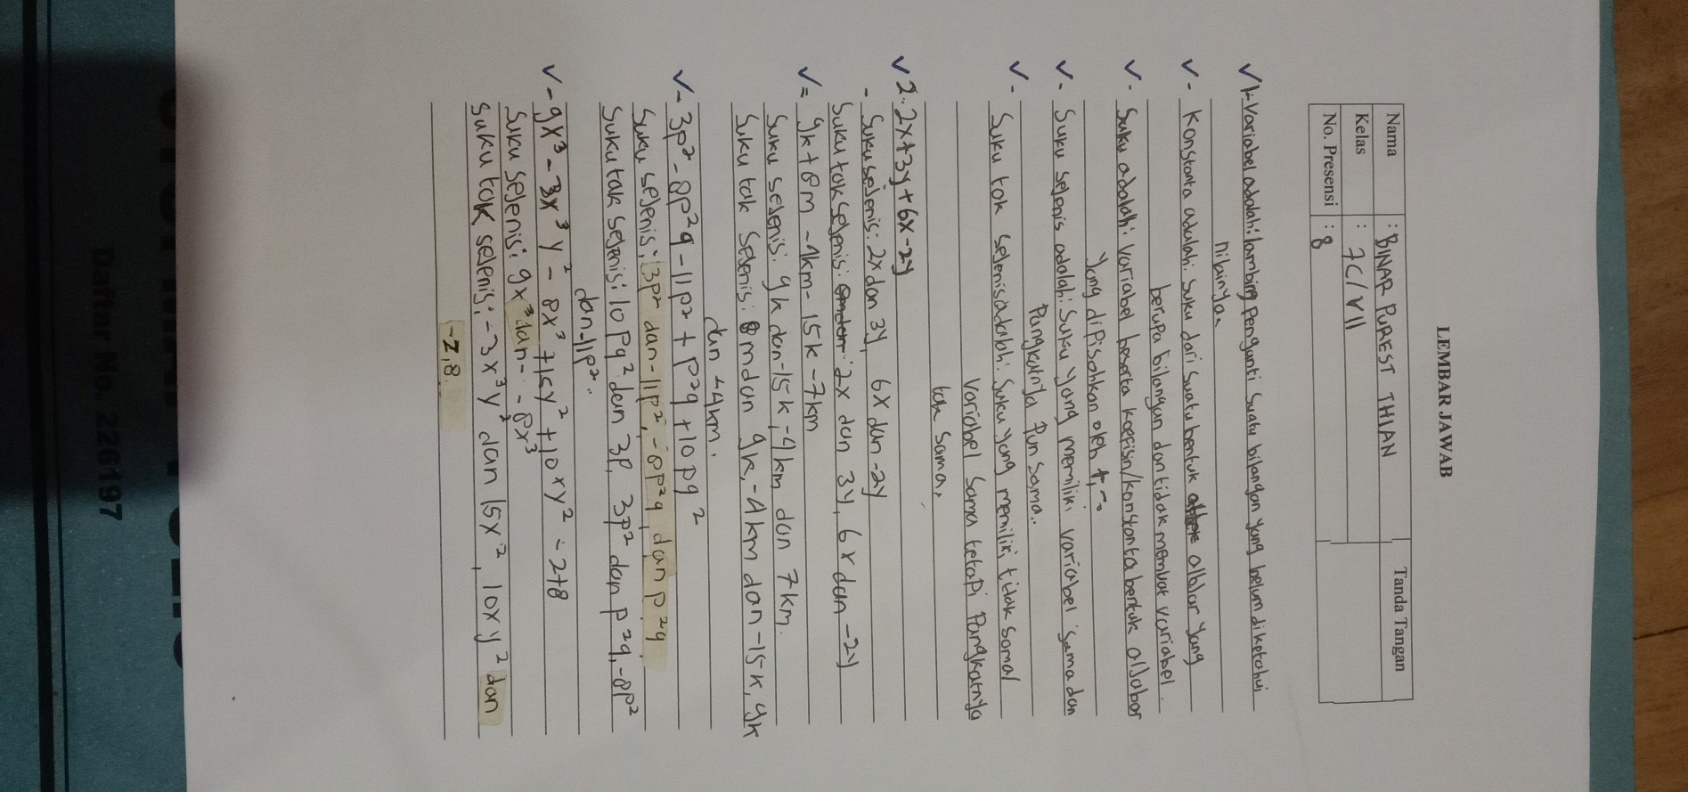 LEMBAR JAWAB
Nama : BINAR PUREST THIAN
Tanda Tangan
Kelas : 7C/VII
No. Presensi : 8
✓ 1. Variabel adalah: lambing pengganti suatu bilangan yang belum diketahui
nilainya.
✓ - Konstanta adalah: suku dari suatu bentuk alblar yang
berupa bilangan dan tidak memuat variabel.
✓ - Suku adalah: variabel beserta koefisin/konstanta bentuk aljabar
yang dipisahkan oleh +, -.
✓ - Suku sejenis adalah: suku yang memiliki variabel sama dan
Pangkatnya pun sama..
✓ - Suku tak sejenis adalah: suku yang memiliki tidak sama/
variabel sama tetapi Pangkatnya
tak sama.
✓ 2. 2x+3y+6x-2y
- Suku sejenis: 2x dan 3y, 6x dan -2y
Suku tak sejenis: 2x dan 3y, 6x dan -2y
✓ = 9k+8m-4km-15k-7km
Suku sejenis: 9k dan -15k, -4km dan 7km.
Suku tak sejenis: 8m dan 9k, -4km dan -15k, 9k
dan -4km.
✓ - 3p²-8p²q-11p²+p²q+10pq²
Suku sejenis: 3p² dan -11p², -8p²q, dan p²q
Suku tak sejenis: 10pq² dan 3p, 3p² dan p²q, -8p²
dan -11p²..
✓ - 9x³-3x³y²-8x³+15y²+10xy²-2+8
Suku sejenis: 9x³ dan - -8x³
Suku tak sejenis: -3x³y² dan 15x², 10xy² dan
-2,8.
Daftar No. 226197